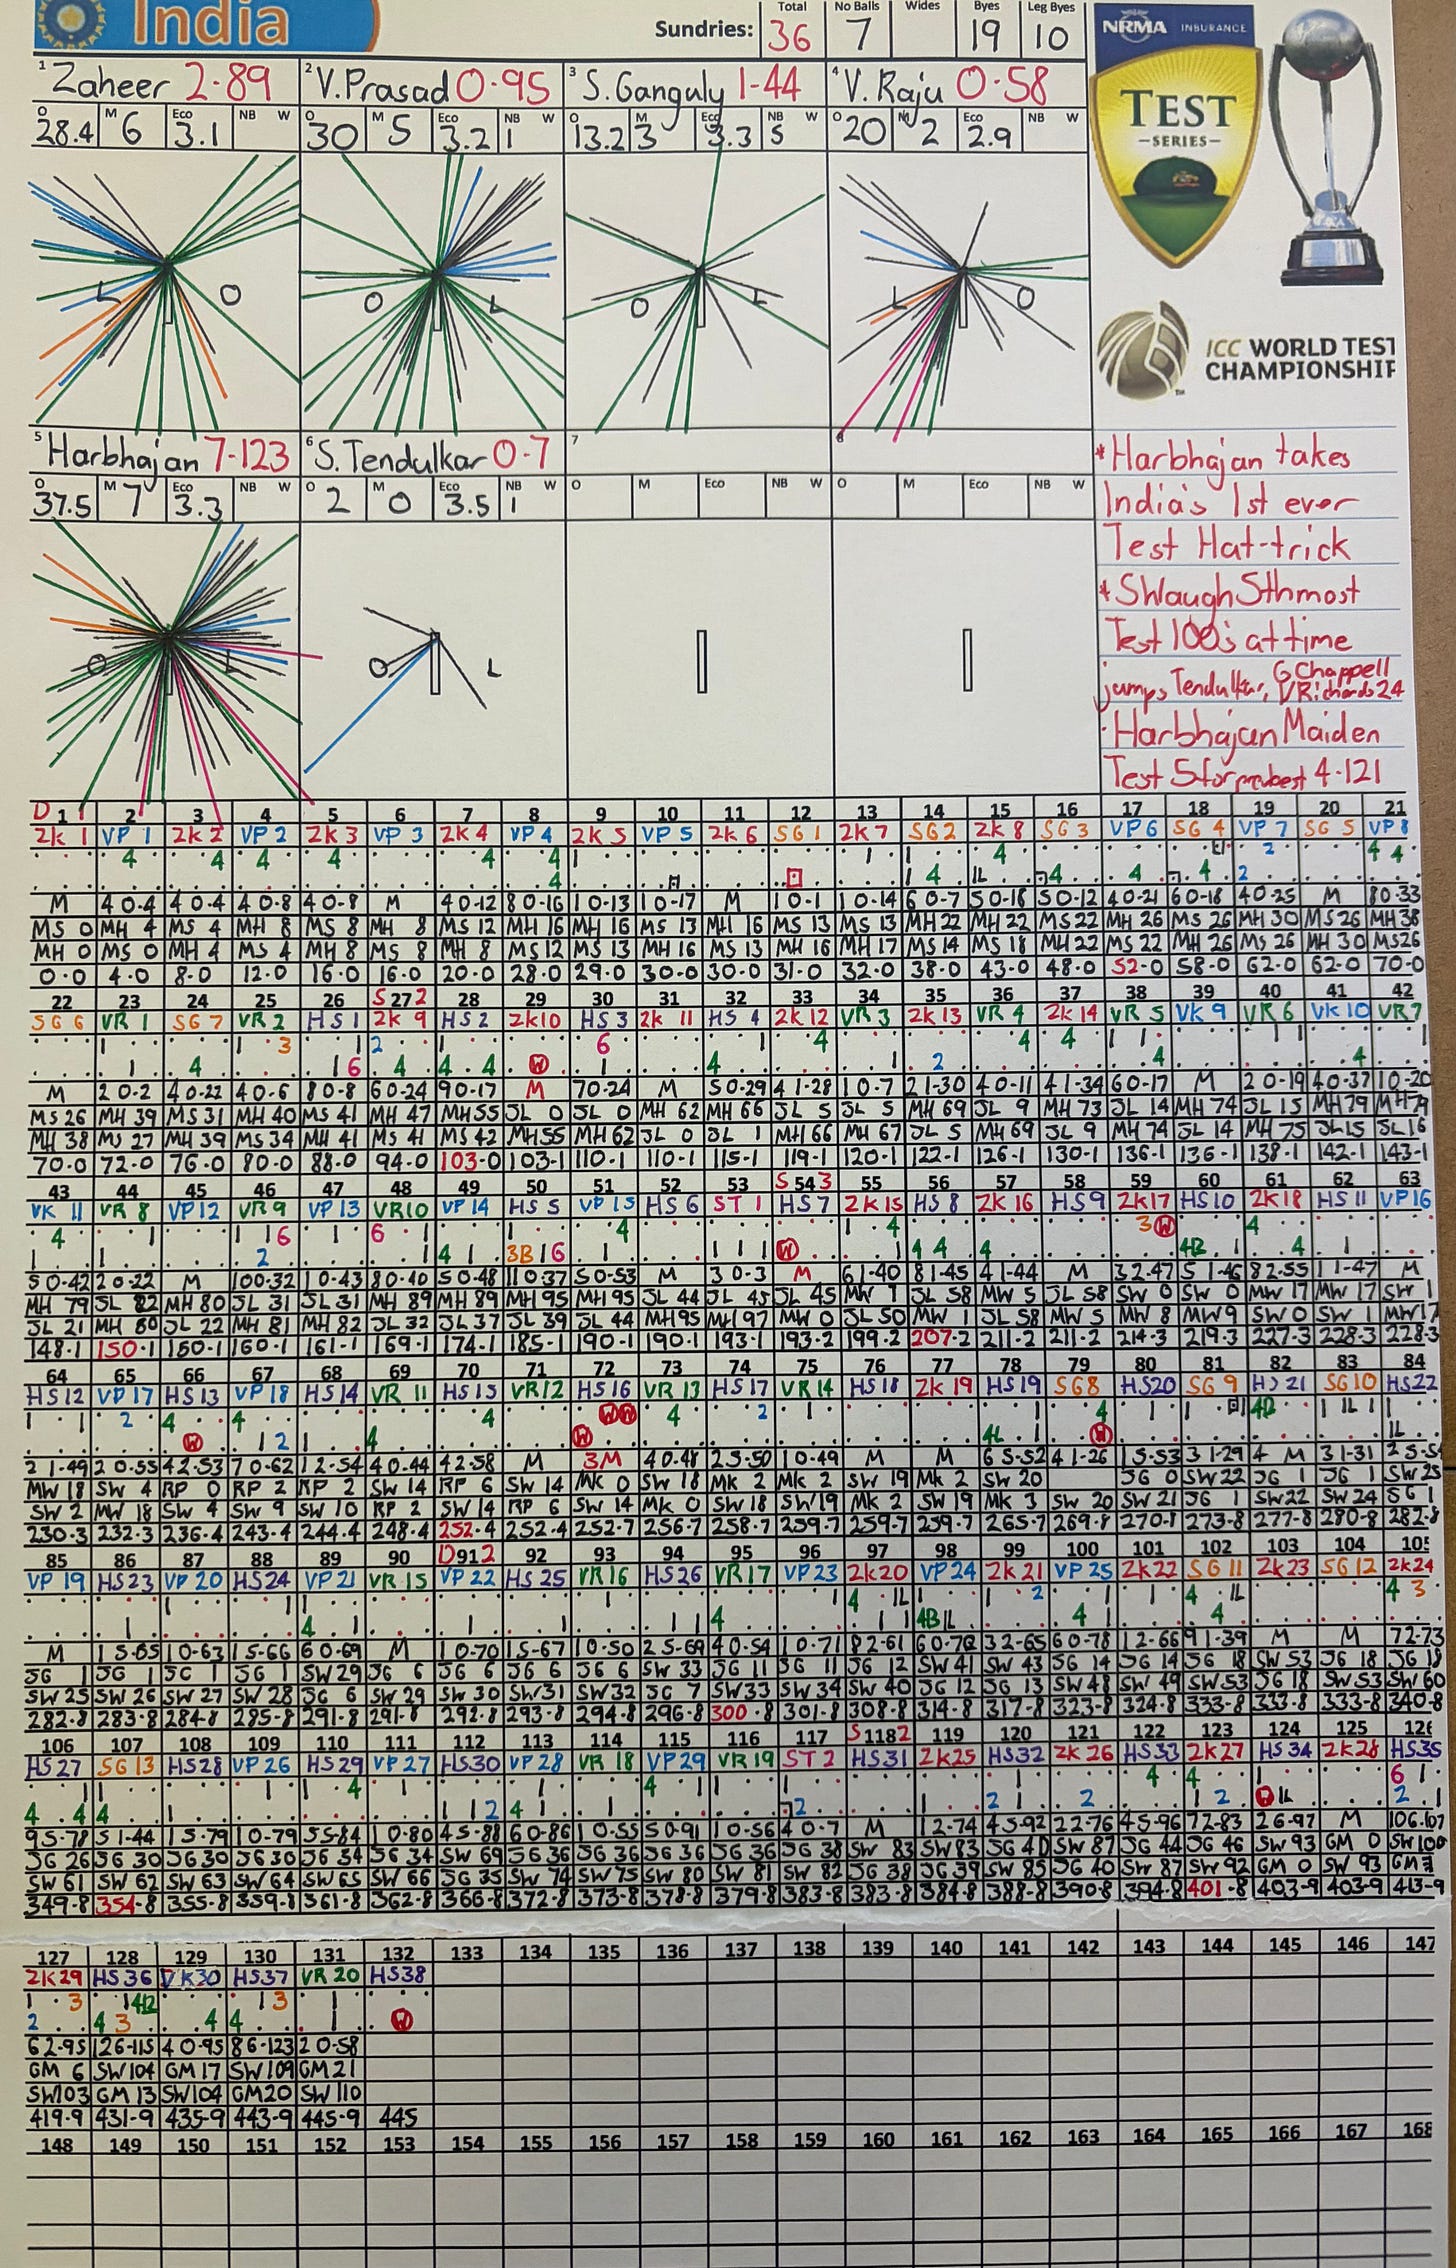 India
Sundries:
Total No Balls Wides Byes Leg Byes
36 7 19 10
NRMA INSURANCE
TEST
-SERIES-
ICC WORLD TEST
CHAMPIONSHIP
1 Zaheer 2-89
O 28.4 M 6 Eco 3.1 NB W
2 V.Prasad 0-95
O 30 M 5 Eco 3.2 NB 1 W
3 S.Ganguly 1-44
O 13.2 M 3 Eco 3.3 NB 5 W
4 V.Raju 0-58
O 20 M 2 Eco 2.9 NB W
L O
O L
O L
L O
5 Harbhajan 7-123
O 37.5 M 7 Eco 3.3 NB W
6 S.Tendulkar 0-7
O 2 M 0 Eco 3.5 NB 1 W
7
O M Eco NB W
8
O M Eco NB W
O L
O L
*Harbhajan takes
India's 1st ever
Test Hat-trick
*SWaugh 5thmost
Test 100s at time
jumps Tendulkar, G Chappell
VRichards 24
Harbhajan Maiden
Test 5for prevbest 4-121
D1 1 2 3 4 5 6 7 8 9 10 11 12 13 14 15 16 17 18 19 20 21
ZK 1 VP 1 ZK 2 VP 2 ZK 3 VP 3 ZK 4 VP 4 ZK 5 VP 5 ZK 6 SG 1 ZK 7 SG 2 ZK 8 SG 3 VP 6 SG 4 VP 7 SG 5 VP 8
M 4 0-4 4 0-4 4 0-8 4 0-8 M 4 0-12 8 0-16 1 0-13 1 0-17 M 1 0-1 1 0-14 6 0-7 5 0-18 5 0-12 4 0-21 6 0-18 4 0-25 M 8 0-33
MS 0 MH 4 MS 4 MH 8 MS 8 MH 8 MS 12 MH 16 MH 16 MS 13 MH 16 MS 13 MS 13 MH 22 MH 22 MS 22 MH 26 MS 26 MH 30 MS 26 MH 38
MH 0 MS 0 MH 4 MS 4 MH 8 MS 8 MH 8 MS 12 MS 13 MH 16 MS 13 MH 16 MH 17 MS 14 MS 18 MH 22 MS 22 MH 26 MS 26 MH 30 MS 26
0-0 4-0 8-0 12-0 16-0 16-0 20-0 28-0 29-0 30-0 30-0 31-0 32-0 38-0 43-0 48-0 52-0 58-0 62-0 62-0 70-0
22 23 24 25 26 S 27 2 28 29 30 31 32 33 34 35 36 37 38 39 40 41 42
SG 6 VR 1 SG 7 VR 2 HS 1 ZK 9 HS 2 ZK 10 HS 3 ZK 11 HS 4 ZK 12 VR 3 ZK 13 VR 4 ZK 14 VR 5 VK 9 VR 6 VK 10 VR 7
M 2 0-2 4 0-22 4 0-6 8 0-8 6 0-24 9 0-17 M 7 0-24 M 5 0-29 4 1-28 1 0-7 2 1-30 4 0-11 4 1-34 6 0-17 M 2 0-19 4 0-37 1 0-20
MS 26 MH 39 MS 31 MH 40 MS 41 MH 47 MH 55 JL 0 JL 0 MH 62 MH 66 JL 5 JL 5 MH 69 JL 9 MH 73 JL 14 MH 74 JL 15 MH 79 MH 79
MH 38 MS 27 MH 39 MS 34 MH 41 MS 41 MS 42 MH 55 MH 62 JL 0 JL 1 MH 66 MH 67 JL 5 MH 69 JL 9 MH 74 JL 14 MH 75 JL 15 JL 16
70-0 72-0 76-0 80-0 88-0 94-0 103-0 103-1 110-1 110-1 115-1 119-1 120-1 122-1 126-1 130-1 136-1 136-1 138-1 142-1 143-1
43 44 45 46 47 48 49 50 51 52 53 S 54 3 55 56 57 58 59 60 61 62 63
VK 11 VR 8 VP 12 VR 9 VP 13 VR 10 VP 14 HS 5 VP 15 HS 6 ST 1 HS 7 ZK 15 HS 8 ZK 16 HS 9 ZK 17 HS 10 ZK 18 HS 11 VP 16
5 0-42 2 0-22 M 10 0-32 1 0-43 8 0-40 5 0-48 11 0-37 5 0-53 M 3 0-3 M 6 1-40 8 1-45 4 1-44 M 3 2-47 5 1-46 8 2-55 1 1-47 M
MH 79 JL 22 MH 80 JL 31 JL 31 MH 89 MH 89 MH 95 MH 95 JL 44 JL 45 JL 45 MW 1 JL 58 MW 5 JL 58 SW 0 SW 0 MW 17 MW 17 SW 1
JL 21 MH 80 JL 22 MH 81 MH 82 JL 32 JL 37 JL 39 JL 44 MH 95 MH 97 MW 0 JL 50 MW 1 JL 58 MW 5 MW 8 MW 9 SW 0 SW 1 MW 17
148-1 150-1 150-1 160-1 161-1 169-1 174-1 185-1 190-1 190-1 193-1 193-2 199-2 207-2 211-2 211-2 214-3 219-3 227-3 228-3 228-3
64 65 66 67 68 69 70 71 72 73 74 75 76 77 78 79 80 81 82 83 84
HS 12 VP 17 HS 13 VP 18 HS 14 VR 11 HS 15 VR 12 HS 16 VR 13 HS 17 VR 14 HS 18 ZK 19 HS 19 SG 8 HS 20 SG 9 HS 21 SG 10 HS 22
2 1-49 2 0-55 4 2-53 7 0-62 1 2-54 4 0-44 4 2-58 M 3M 4 0-48 2 5-50 1 0-49 M M 6 5-52 4 1-26 1 5-53 3 1-29 4 M 3 1-31 2 5-5
MW 18 SW 4 RP 0 RP 2 RP 2 SW 14 RP 6 SW 14 MK 0 SW 18 MK 2 MK 2 SW 19 MK 2 SW 20 JG 0 SW 22 JG 1 JG 1 SW 25
SW 2 MW 18 SW 4 SW 9 SW 10 RP 2 SW 14 RP 6 SW 14 MK 0 SW 18 SW 19 MK 2 SW 19 MK 3 SW 20 SW 21 JG 1 SW 22 SW 24 SG 1
230-3 232-3 236-4 243-4 244-4 248-4 252-4 252-4 252-7 256-7 258-7 259-7 259-7 259-7 265-7 269-8 270-8 273-8 277-8 280-8 282-8
85 86 87 88 89 90 D 91 2 92 93 94 95 96 97 98 99 100 101 102 103 104 105
VP 19 HS 23 VP 20 HS 24 VP 21 VR 15 VP 22 HS 25 VR 16 HS 26 VR 17 VP 23 ZK 20 VP 24 ZK 21 VP 25 ZK 22 SG 11 ZK 23 SG 12 ZK 24
M 1 5-65 1 0-63 1 5-66 6 0-69 M 1 0-70 1 5-67 1 0-50 2 5-69 4 0-54 1 0-71 8 2-61 6 0-72 3 2-65 6 0-78 1 2-66 9 1-39 M M 7 2-73
JG 1 JG 1 JG 1 JG 1 SW 29 JG 6 JG 6 JG 6 JG 6 SW 33 JG 11 JG 11 JG 12 SW 41 SW 43 JG 14 JG 14 JG 18 SW 53 JG 18 JG 18
SW 25 SW 26 SW 27 SW 28 JG 6 SW 29 SW 30 SW 31 SW 32 JG 7 SW 33 SW 34 SW 40 JG 12 JG 13 SW 48 SW 49 SW 53 JG 18 SW 53 SW 60
282-8 283-8 284-8 285-8 291-8 291-8 292-8 293-8 294-8 296-8 300-8 301-8 308-8 314-8 317-8 323-8 324-8 333-8 333-8 333-8 340-8
106 107 108 109 110 111 112 113 114 115 116 117 S 118 2 119 120 121 122 123 124 125 126
HS 27 SG 13 HS 28 VP 26 HS 29 VP 27 HS 30 VP 28 VR 18 VP 29 VR 19 ST 2 HS 31 ZK 25 HS 32 ZK 26 HS 33 ZK 27 HS 34 ZK 28 HS 35
9 5-78 5 1-44 1 5-79 1 0-79 5 5-84 1 0-80 4 5-88 6 0-86 1 0-55 5 0-91 1 0-56 4 0-7 M 1 2-74 4 5-92 2 2-76 4 5-96 7 2-83 2 6-97 M 10 6-107
JG 26 JG 30 JG 30 JG 30 JG 34 JG 34 SW 69 JG 36 JG 36 JG 36 JG 36 JG 38 SW 83 SW 83 JG 40 SW 87 JG 44 JG 46 SW 93 GM 0 SW 100
SW 61 SW 62 SW 63 SW 64 SW 65 SW 66 JG 35 SW 74 SW 75 SW 80 SW 81 SW 82 JG 38 JG 39 SW 85 JG 40 SW 87 SW 92 GM 0 SW 93 GM 3
349-8 354-8 355-8 359-8 361-8 362-8 366-8 372-8 373-8 378-8 379-8 383-8 383-8 384-8 388-8 390-8 394-8 401-8 403-9 403-9 413-9
127 128 129 130 131 132 133 134 135 136 137 138 139 140 141 142 143 144 145 146 147
ZK 29 HS 36 VK 30 HS 37 VR 20 HS 38
6 2-95 12 6-115 4 0-95 8 6-123 2 0-58
GM 6 SW 104 GM 17 SW 109 GM 21
SW 103 GM 13 SW 104 GM 20 SW 110
419-9 431-9 435-9 443-9 445-9 445
148 149 150 151 152 153 154 155 156 157 158 159 160 161 162 163 164 165 166 167 168